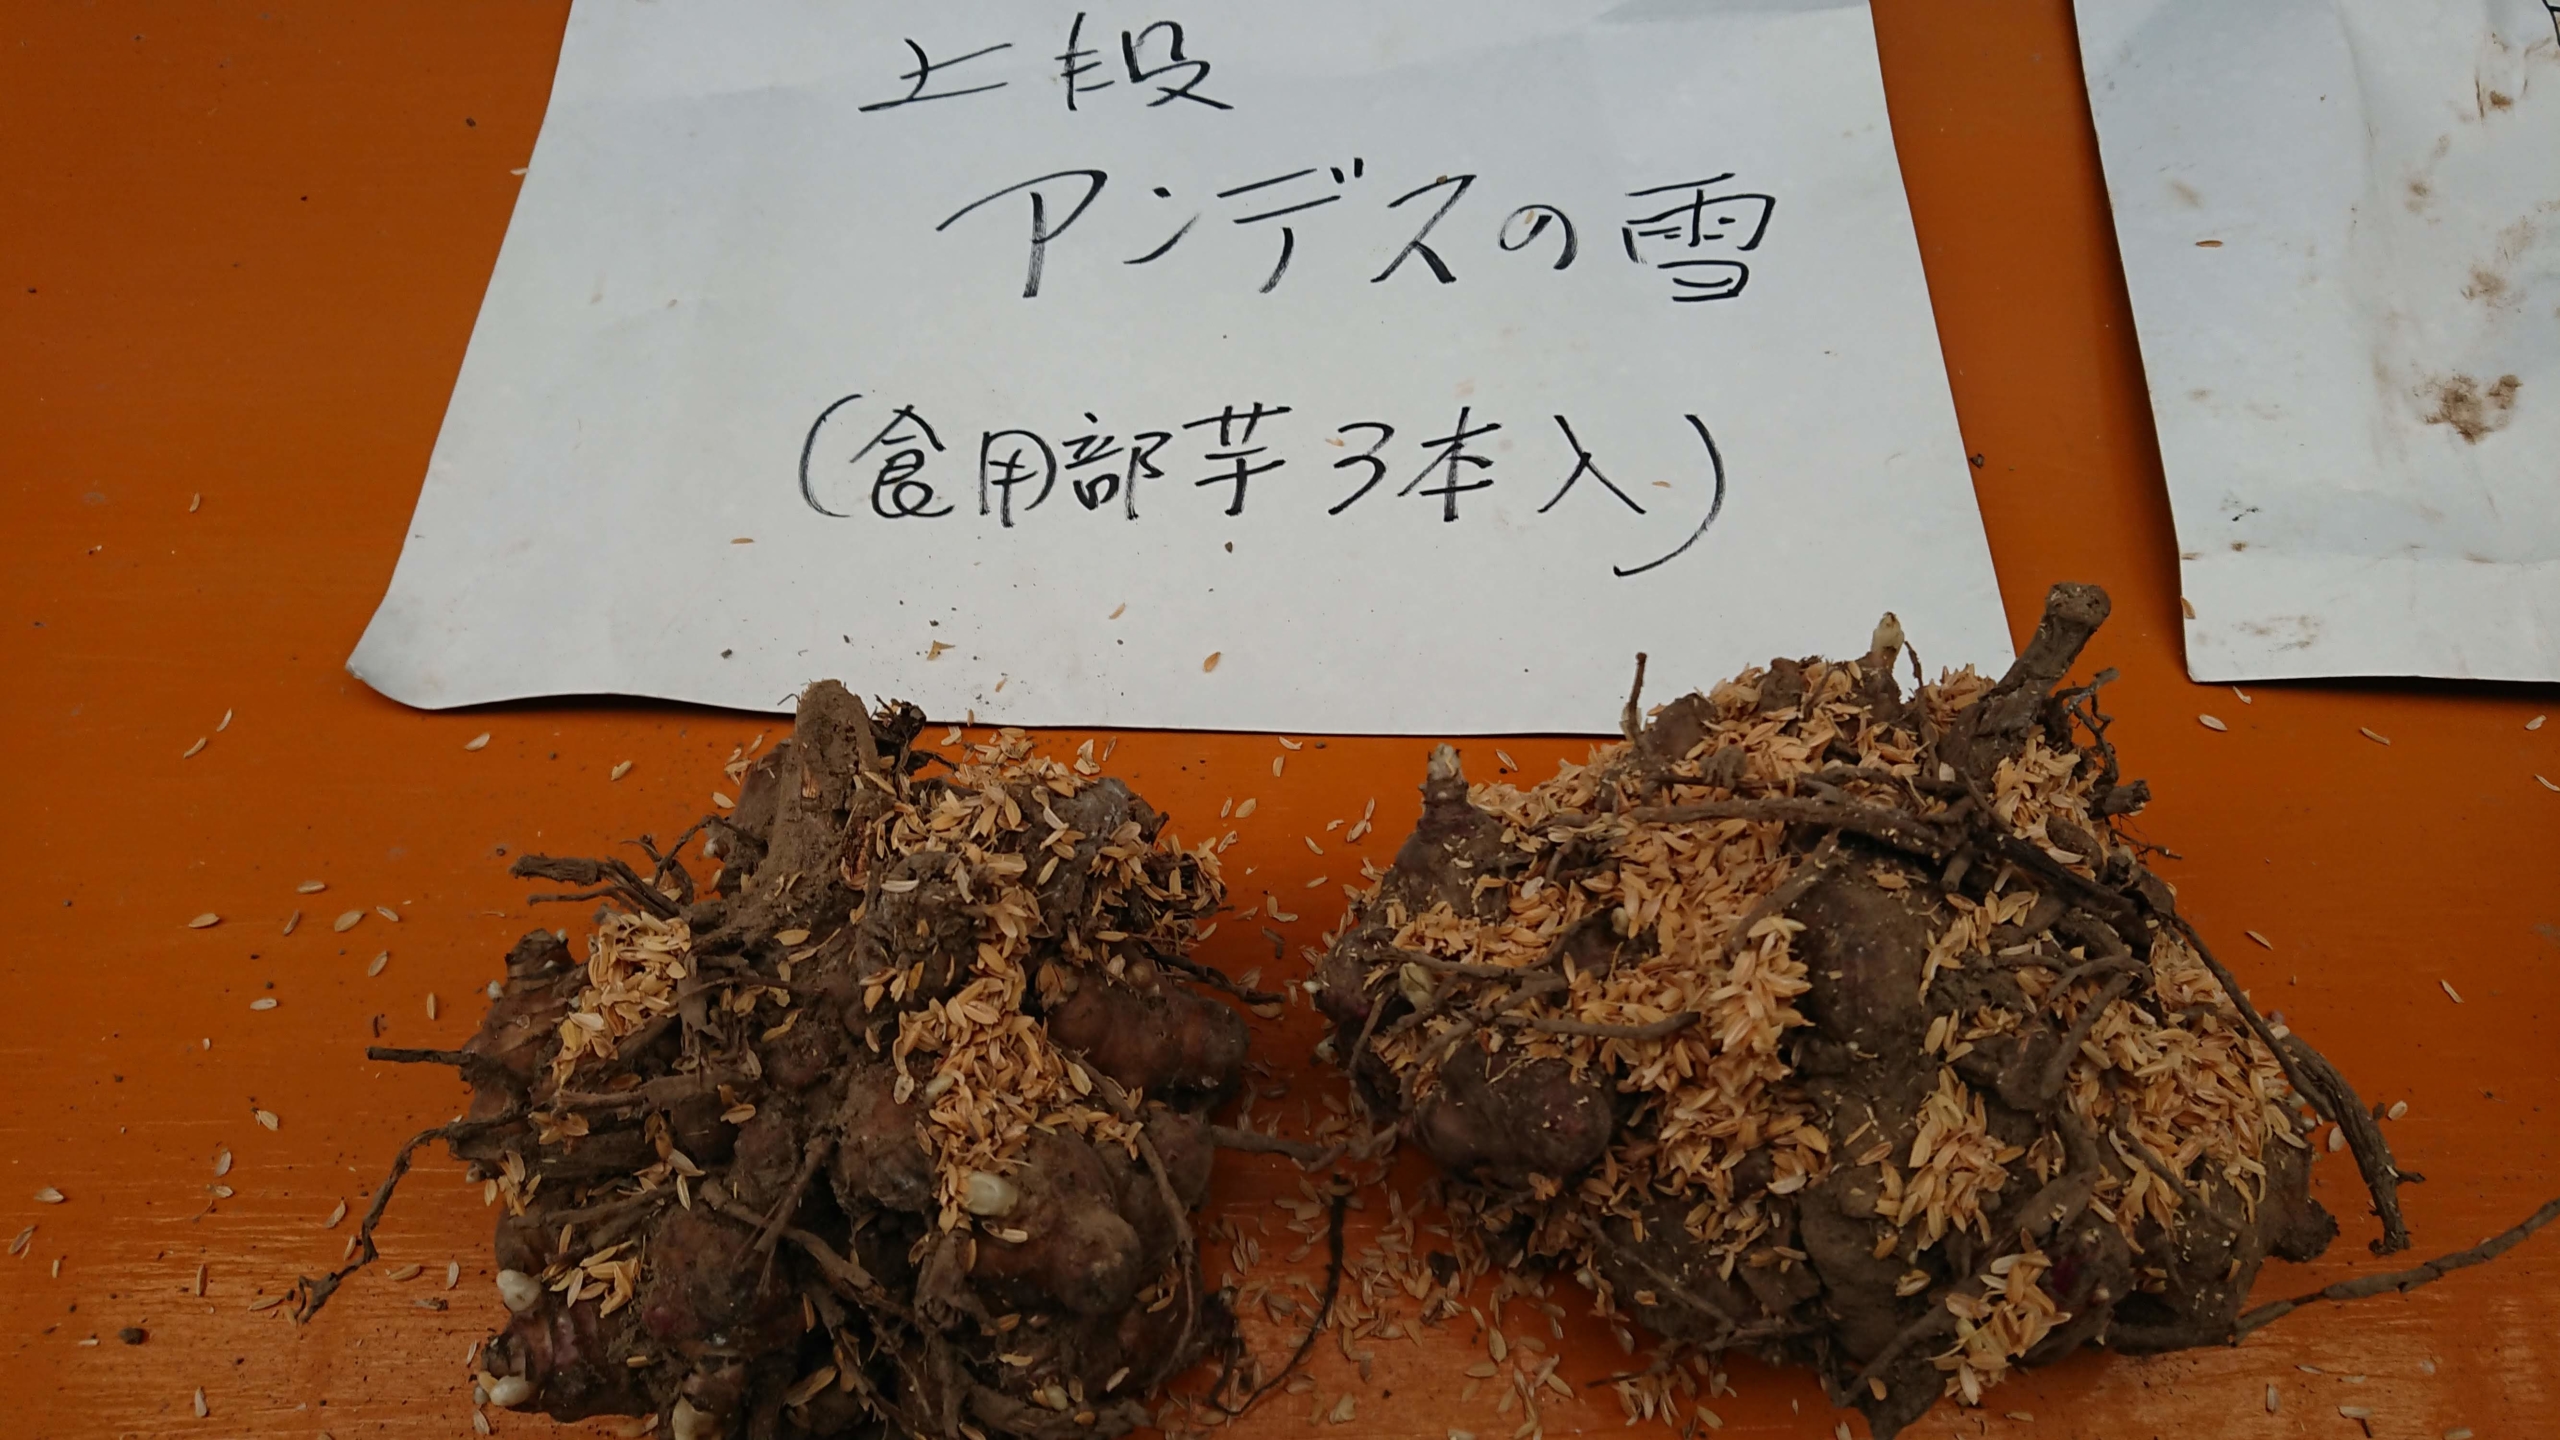 上段
アンデスの雪
(食用部芋3本入)